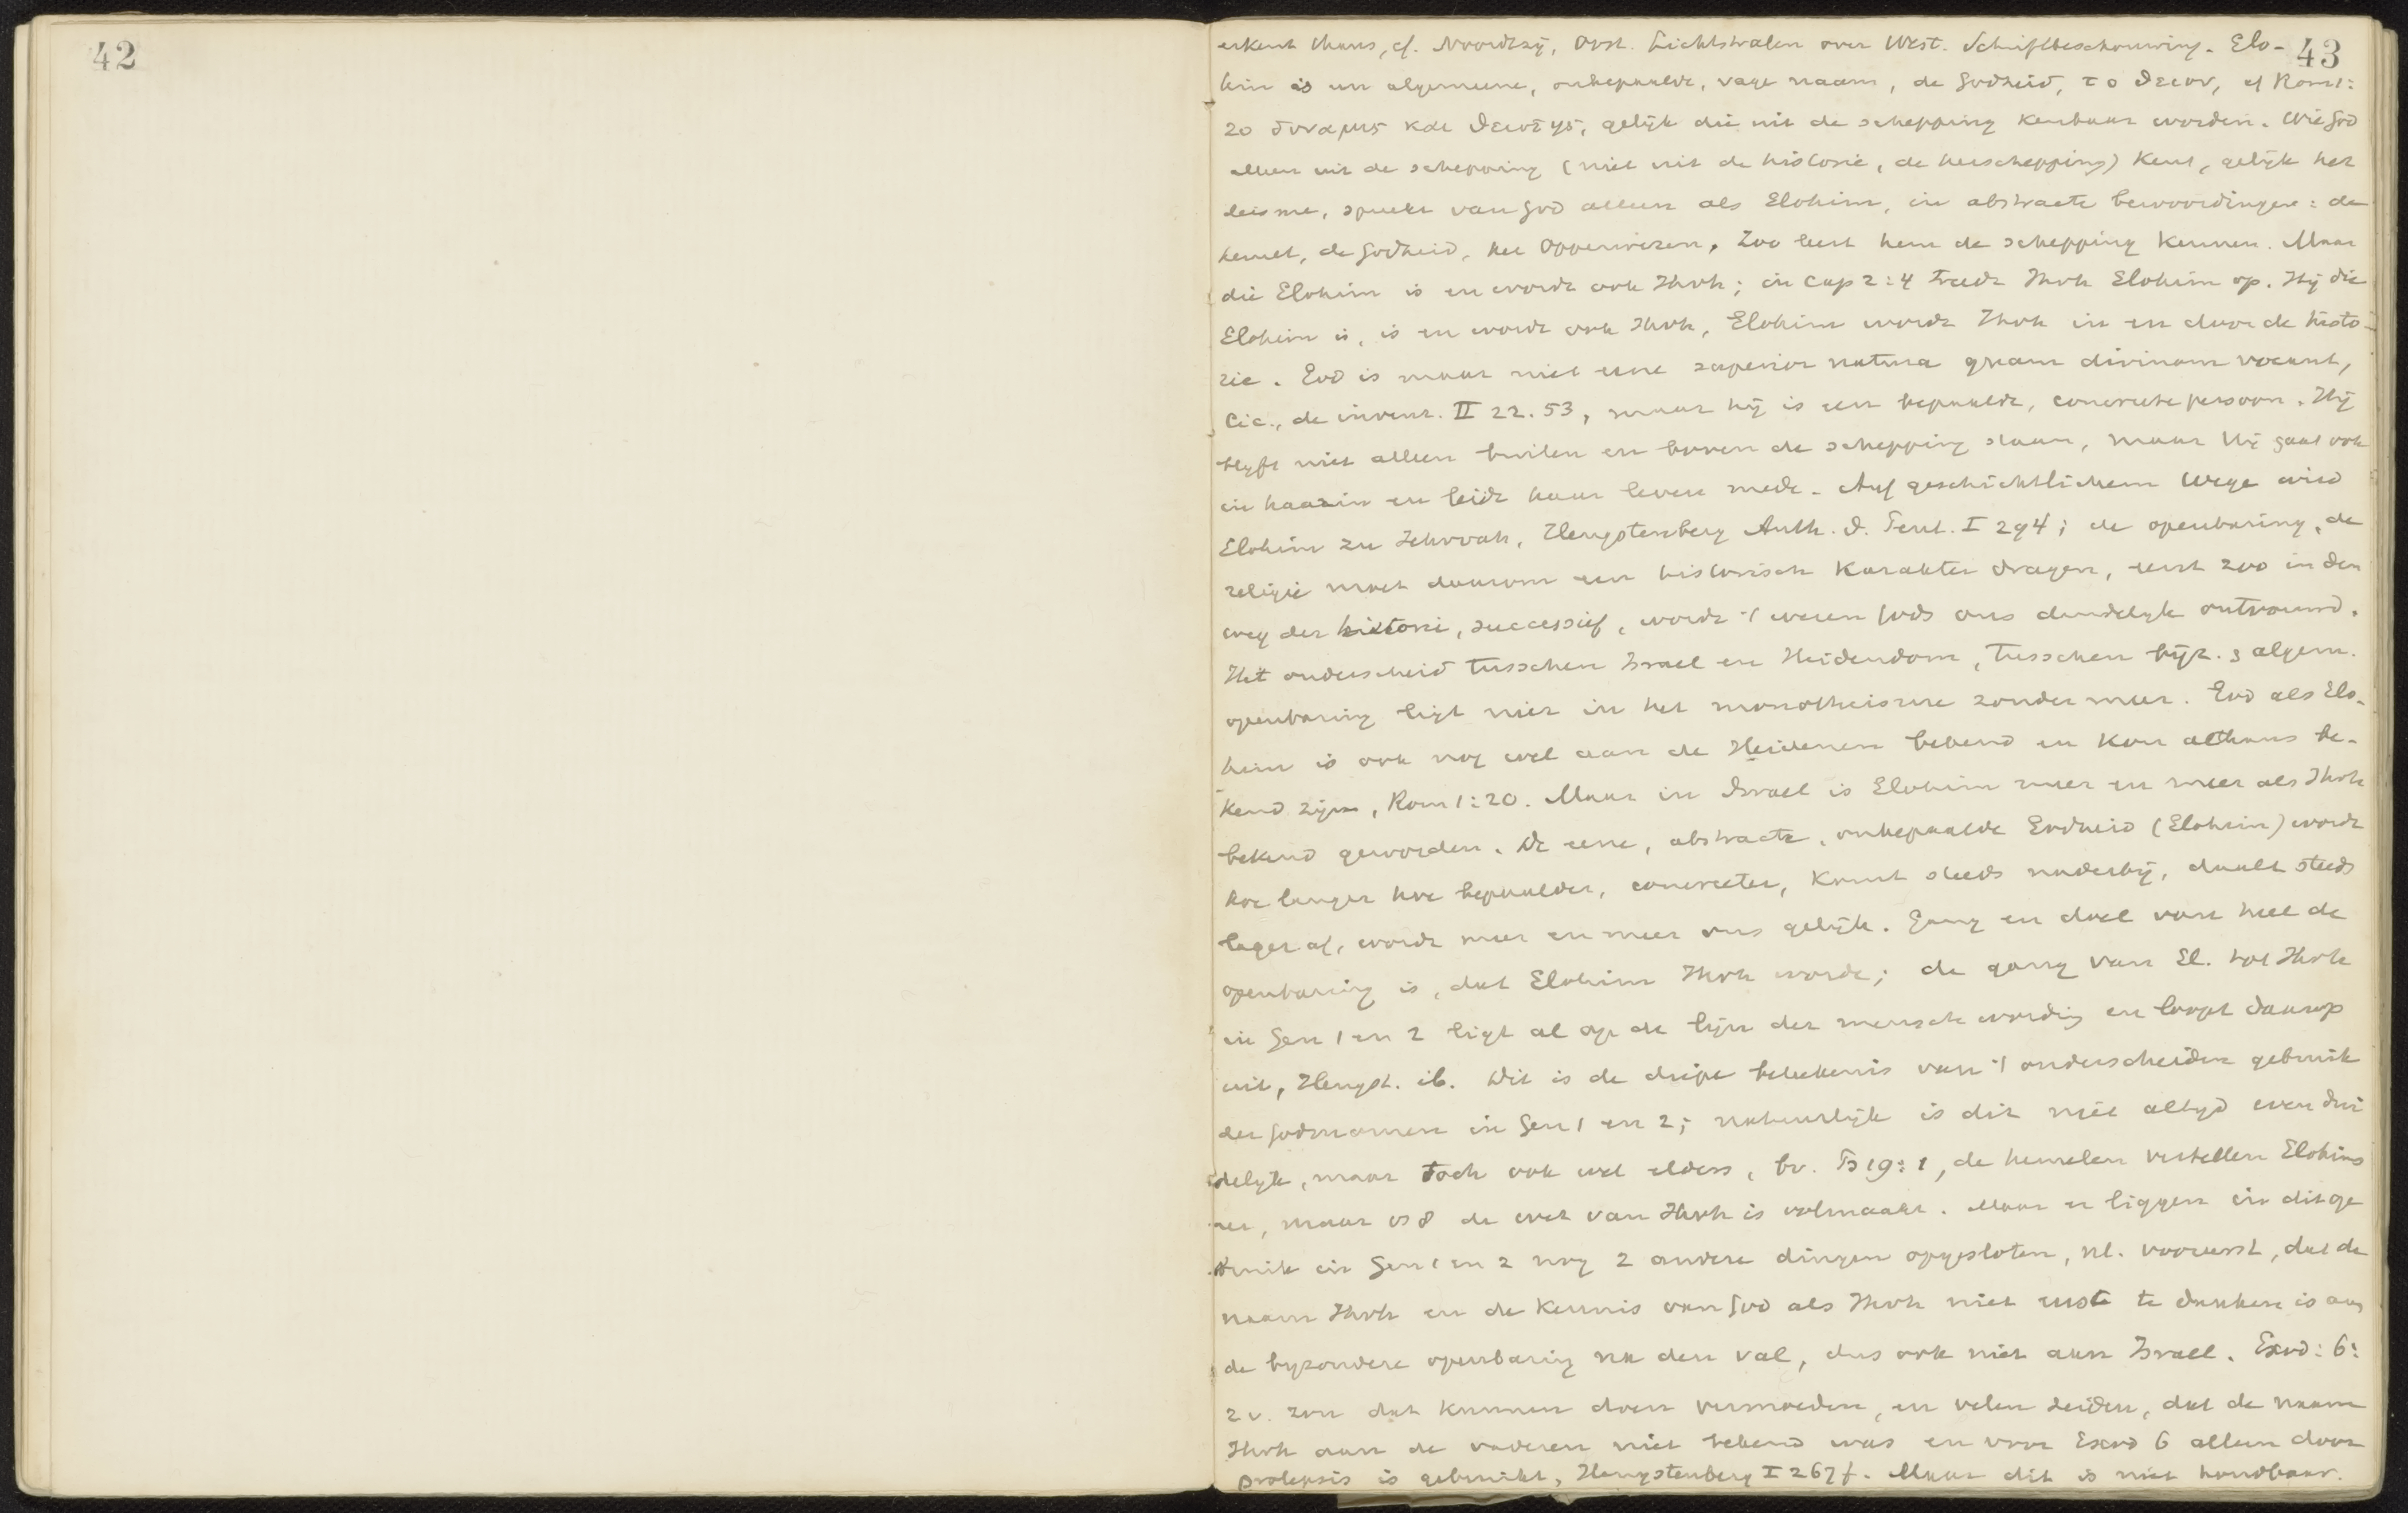 42
43
erkent thans, cf. Noordtzij, Oost. Lichtstralen over West. Schriftbeschouwing. Elo-
him is een algemeene, onbepaalde, vage naam, de Godheid, το θειον, cf Rom 1:
20 δυναμις και θειοτης, gelijk die uit de schepping kenbaar worden. Wie God
alleen uit de schepping (niet uit de historie, de herschepping) kent, gelijk het
deisme, spreekt van God alleen als Elohim, in abstracte bewoordingen: de
hemel, de Godheid, het Opperwezen. Zoo leert hem de schepping kennen. Maar
die Elohim is en wordt ook Jhvh; in cap 2:4 treedt Jhvh Elohim op. Hij die
Elohim is, is en wordt ook Jhvh, Elohim wordt Jhvh in en door de histo-
rie. God is maar niet eene superior natura quam divinam vocant,
Cic., de invent. II 22. 53, maar hij is een bepaalde, concrete persoon. Hij
blijft niet alleen buiten en boven de schepping staan, maar Hij gaat ook
in haar in en leidt haar leven mede. Auf geschichtlichem Wege wird
Elohim zu Jehovah, Hengstenberg Auth. d. Pent. I 294; de openbaring, de
religie moet daarom een historisch karakter dragen, eerst zoo in den
weg der historie, successief, wordt 't wezen Gods ons duidelijk ontvouwd.
Het onderscheid tusschen Israel en Heidendom, tusschen bijz. & algem.
openbaring ligt niet in het monotheisme zonder meer. God als Elo-
him is ook nog wel aan de Heidenen bekend en kon althans be-
kend zijn, Rom 1:20. Maar in Israel is Elohim meer en meer als Jhvh
bekend geworden. De eene, abstracte, onbepaalde Godheid (Elohim) wordt
hoe langer hoe bepaalder, concreter, komt steeds naderbij, daalt steeds
lager af, wordt meer en meer ons gelijk. Gang en doel van heel de
openbaring is, dat Elohim Jhvh worde; de gang van El. tot Jhvh
in Gen 1 en 2 ligt al op de lijn der menschwording en loopt daarop
uit, Hengst. ib. Dit is de diepe beteekenis van 't onderscheiden gebruik
der Godsnamen in Gen 1 en 2; natuurlijk is dit niet altijd even dui
delijk, maar toch ook wel elders, bv. Ps 19:1, de hemelen vertellen Elohims
eer, maar vs 8 de wet van Jhvh is volmaakt. Maar er liggen in dit ge
bruik in Gen 1 en 2 nog 2 andere dingen opgesloten, nl. vooreerst, dat de
naam Jhvh en de kennis van God als Jhvh niet eerst te danken is aan
de bijzondere openbaring na den val, dus ook niet aan Israel. Exod: 6:
2v. zou dat kunnen doen vermoeden, en velen zeiden, dat de naam
Jhvh aan de vaderen niet bekend was en voor Exod 6 alleen door
prolepsis is gebruikt, Hengstenberg I 267 f. Maar dit is niet houdbaar.